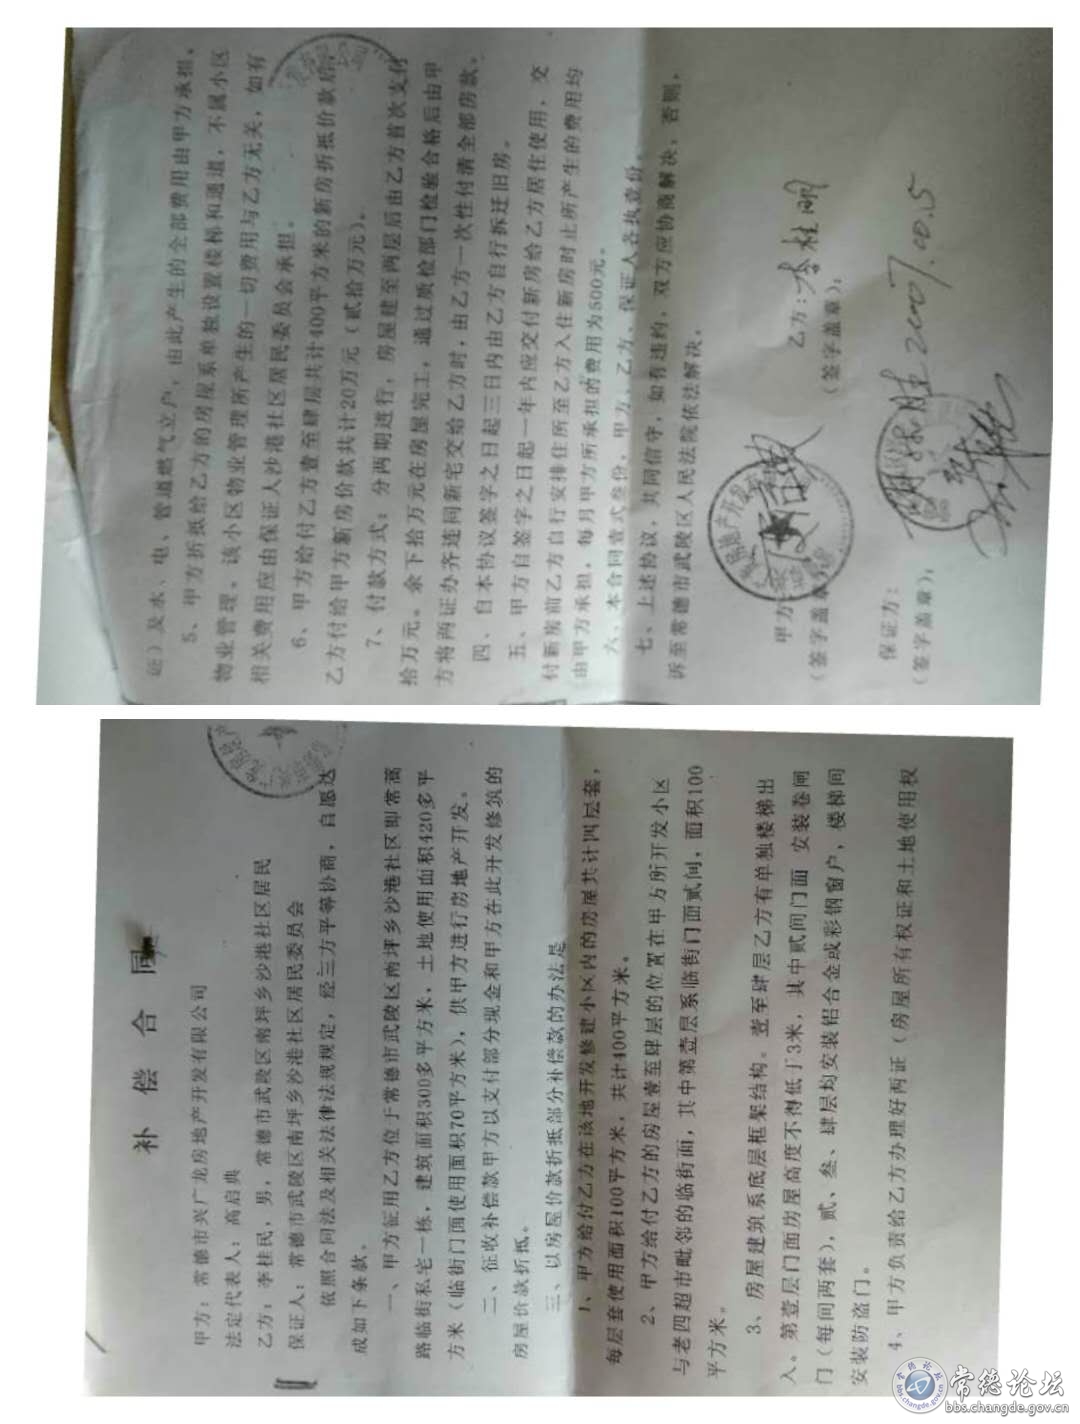 补偿合同
甲方：常德市兴广龙房地产开发有限公司
法定代表人：高启典
乙方：李桂民，男，常德市武陵区南坪乡沙港社区居民
保证人：常德市武陵区南坪乡沙港社区居民委员会
依照合同法及相关法律法规规定，经三方平等协商，自愿达
成如下条款。
一、甲方征用乙方位于常德市武陵区南坪乡沙港社区即常蒿
路临街私宅一栋，建筑面积300多平方米，土地使用面积420多平
方米（临街门面使用面积70平方米），供甲方进行房地产开发。
二、征收补偿款甲方以支付部分现金和甲方在此开发修筑的
房屋价款折抵。
三、以房屋价款折抵部分补偿款的办法是
1、甲方给付乙方在该地开发修建小区内的房屋共计四层套，
每层套使用面积100平方米，共计400平方米。
2、甲方给付乙方的房屋壹至肆层的位置在甲方所开发小区
与老四超市毗邻的临街面，其中第壹层系临街门面贰间，面积100
平方米。
3、房屋建筑系底层框架结构。壹至肆层乙方有单独楼梯出
入。第壹层门面房屋高度不得低于3米，其中贰间门面 安装卷闸
门（每间两套），贰、叁、肆层均安装铝合金或彩钢窗户，楼梯间
安装防盗门。
4、甲方负责给乙方办理好两证（房屋所有权证和土地使用权
证）及水、电、管道燃气立户，由此产生的全部费用由甲方承担。
5、甲方折抵给乙方的房屋系单独设置楼梯和通道，不属小区
物业管理。该小区物业管理所产生的一切费用与乙方无关，如有
相关费用应由保证人沙港社区居民委员会承担。
6、甲方给付乙方壹至肆层共计400平方米的新房折抵价款后，
乙方付给甲方新房价款共计20万元（贰拾万元）。
7、付款方式：分两期进行，房屋建至两层后由乙方首次支付
拾万元。余下拾万元在房屋完工，通过质检部门检验合格后由甲
方将两证办齐连同新宅交给乙方时，由乙方一次性付清全部房款。
四、自本协议签字之日起三日内由乙方自行拆迁旧房。
五、甲方自签字之日起一年内应交付新房给乙方居住使用，交
付新房前乙方自行安排住所至乙方入住新房时止所产生的费用均
由甲方承担，每月甲方所承担的费用为500元。
六、本合同壹式叁份，甲方、乙方、保证人各执壹份。
七、上述协议，共同信守，如有违约，双方应协商解决，否则，
诉至常德市武陵区人民法院依法解决。
甲方：
（签字盖章）：
乙方：李桂明
（签字盖章）：
保证方：
（签字盖章）：
2007.10.5
常德论坛
bbs.changde.gov.cn